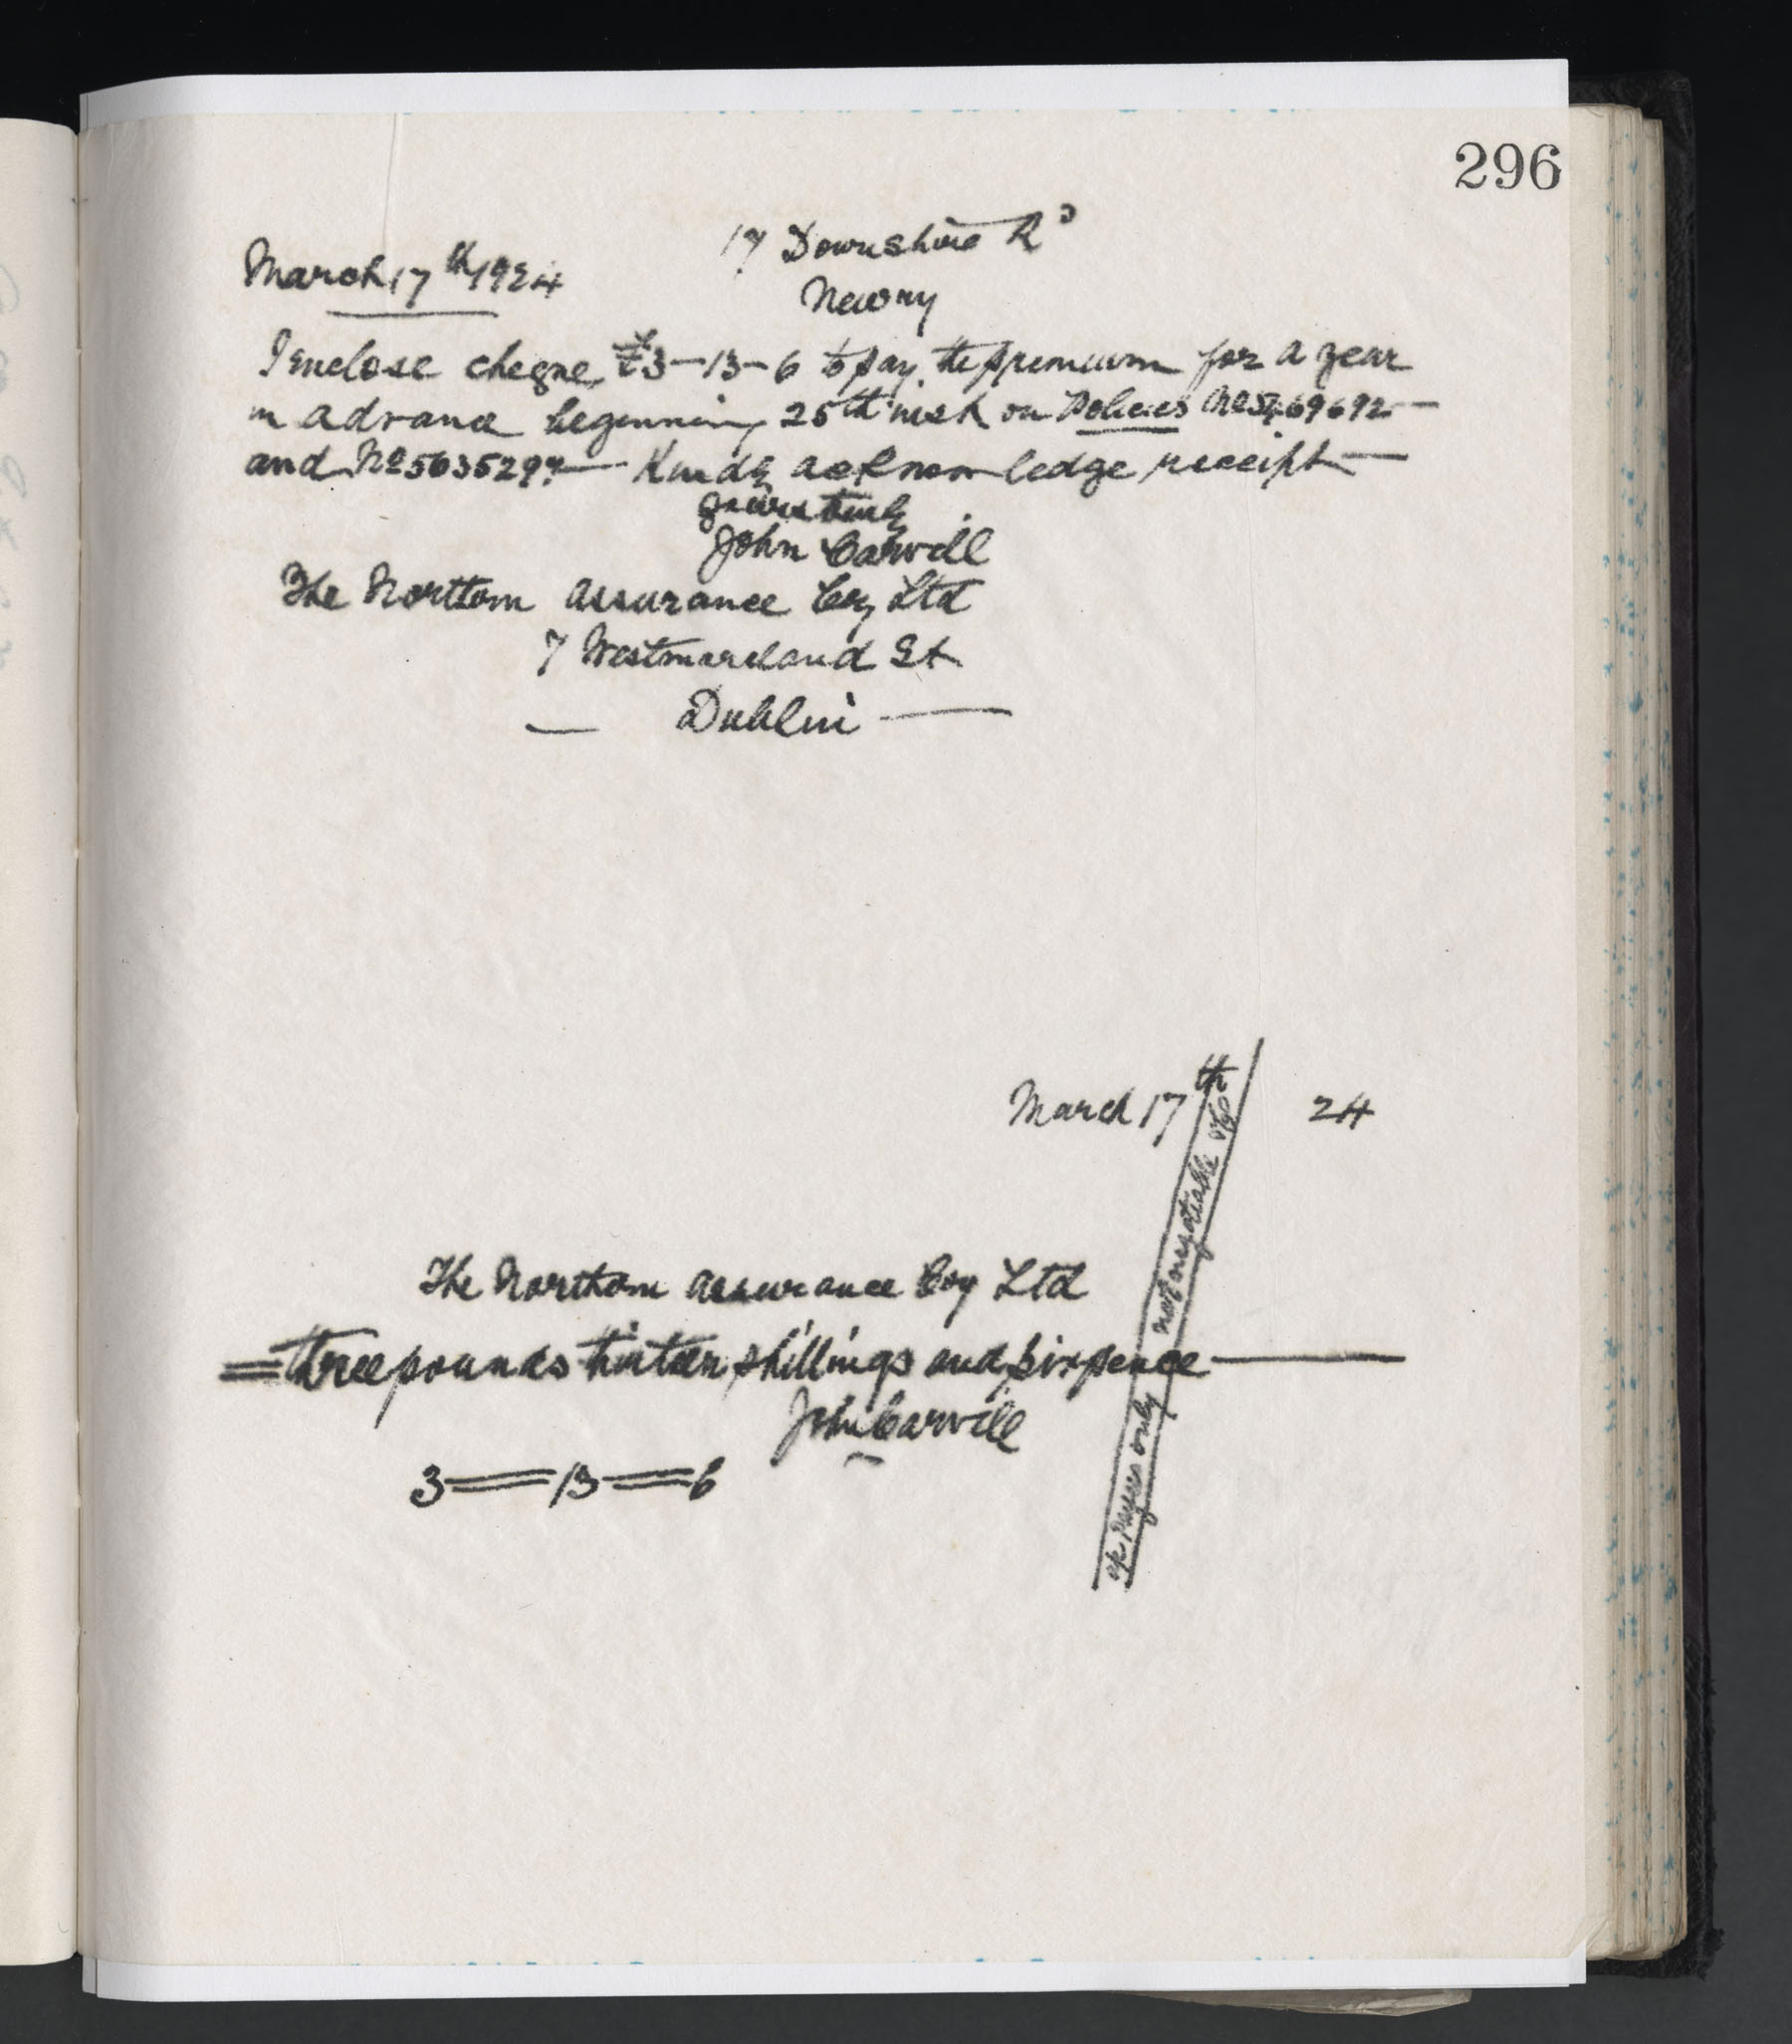 296
17 Downshire Rd
March 17th 1924
Newry
I enclose cheque, £3-13-6 to pay the premium for a year
in advance beginning 25th inst on Policies No 5469692 —
and No 5635297 — Kindly acknowledge receipt —
yours truly
John Carvill
The Northern Assurance Coy Ltd
7 Westmoreland St
— Dublin —
March 17th 24
The Northern Assurance Coy Ltd
= three pounds thirteen shillings and sixpence —
John Carvill
3 = 13 = 6
a/c Payees only not negotiable & Co